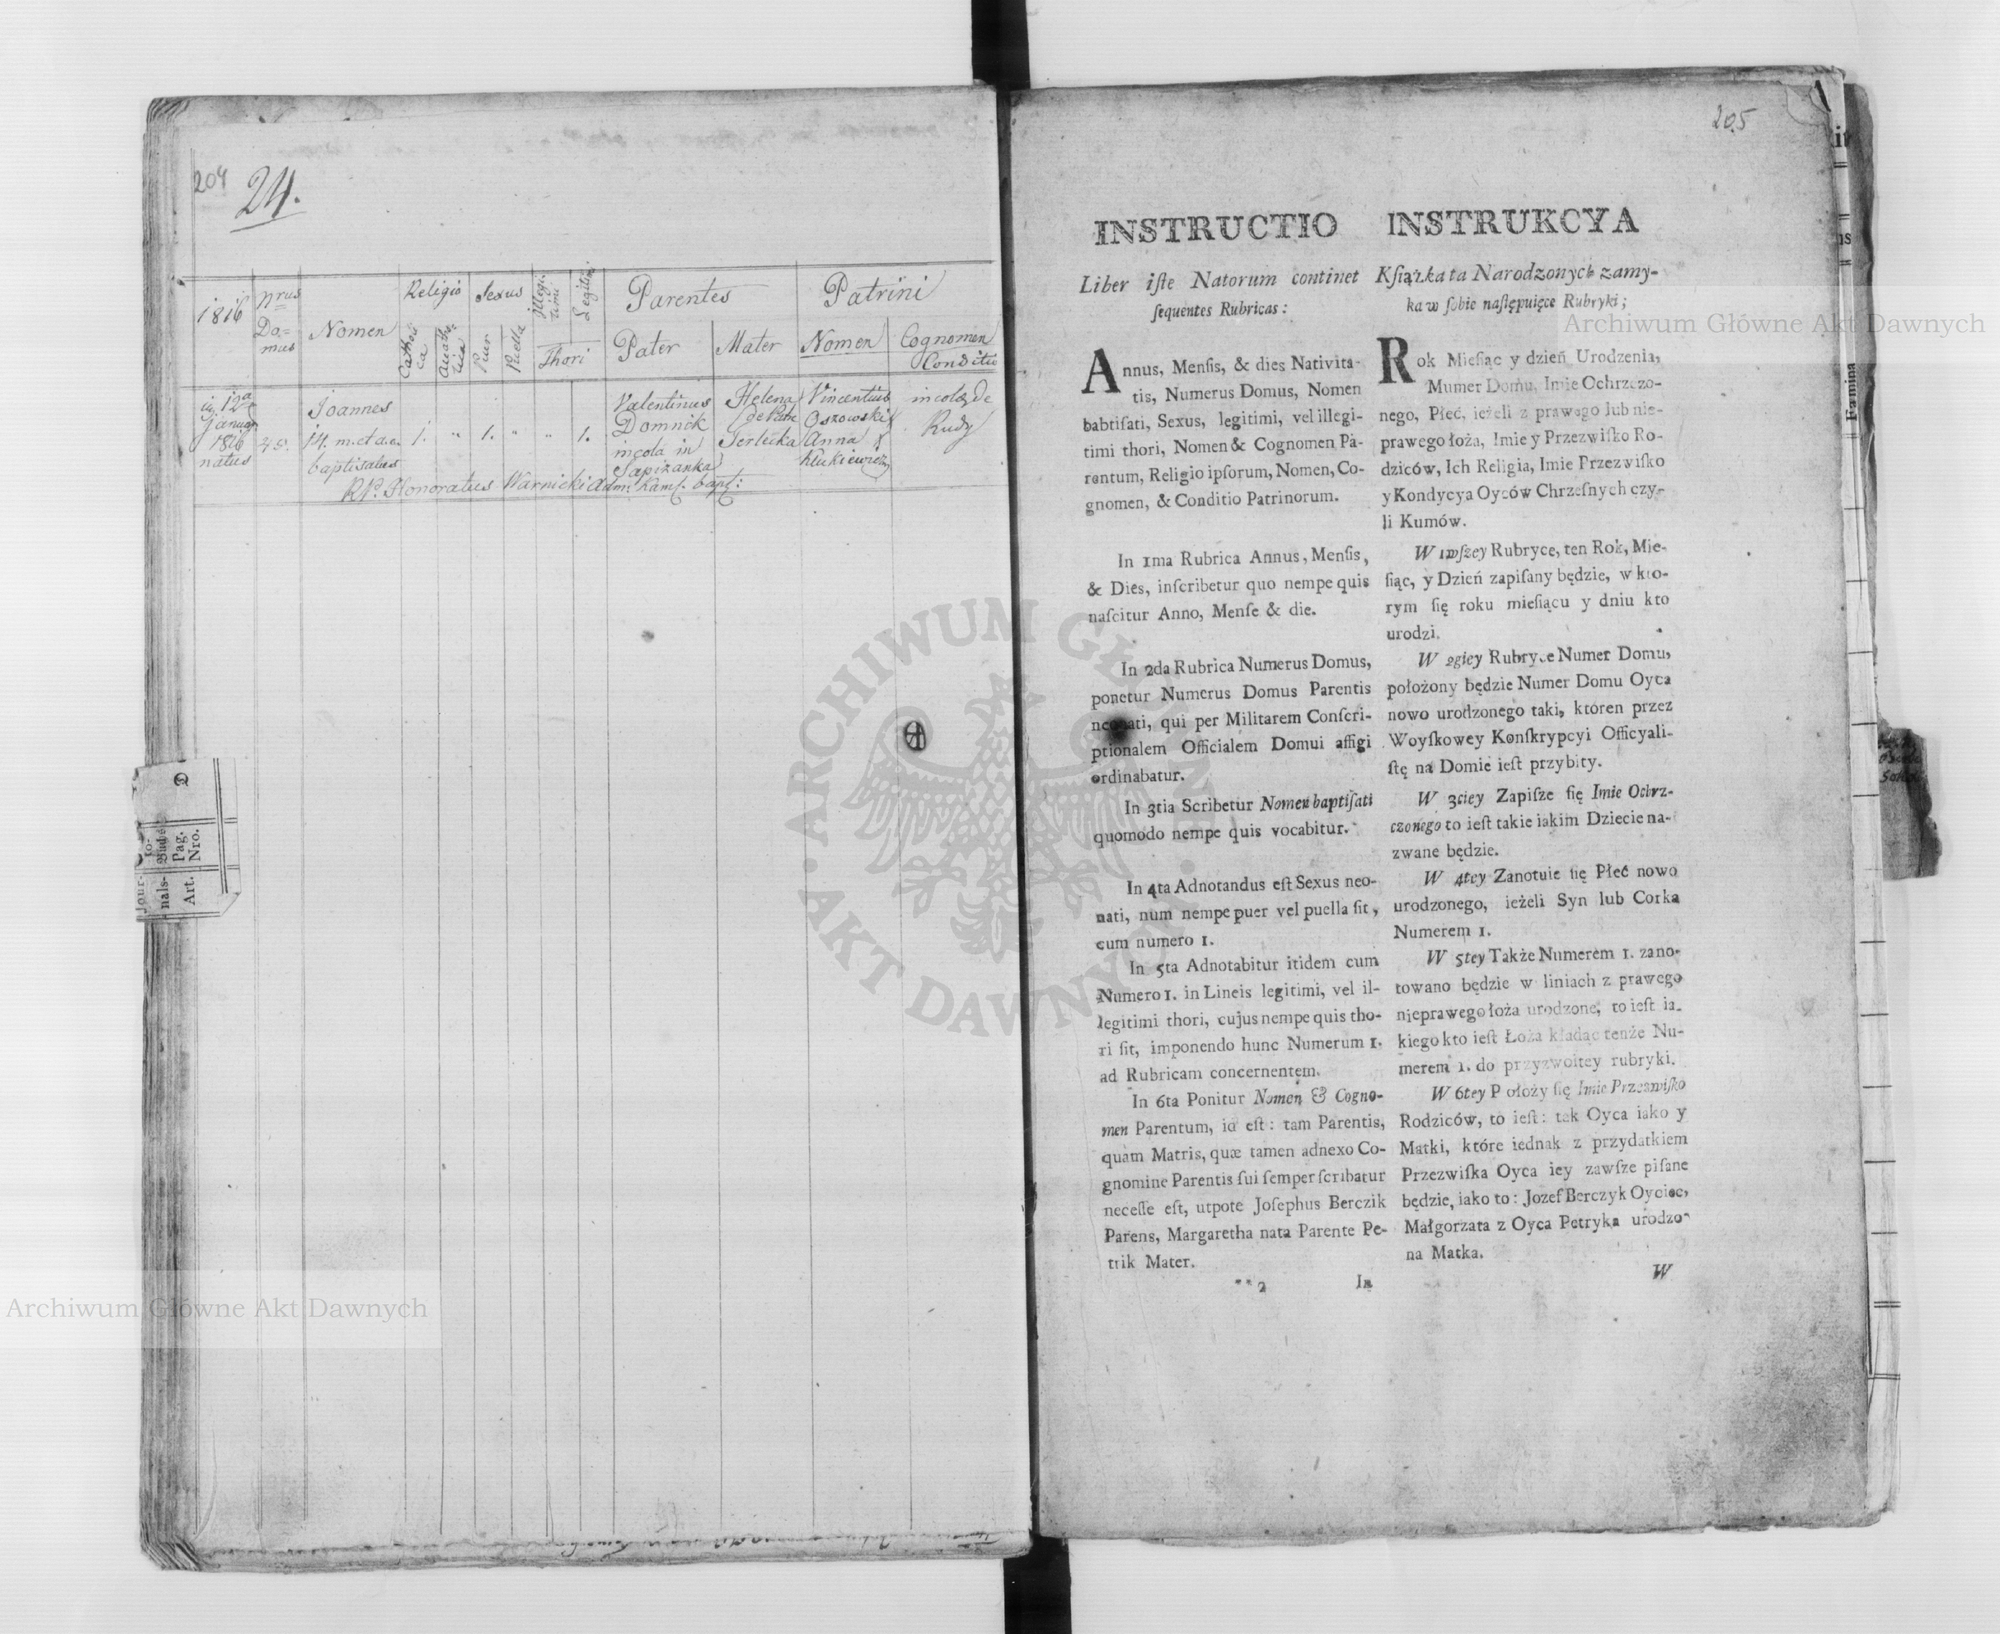 204
24.
1816
Nrus Domus
Nomen
Religio
Catholica
Sexus
Puer
Puella
Illegitimi
Legitimi
Thori
Parentes
Pater
Mater
Patrini
Nomen
Cognomen
Conditio
12a
1816
natus
45.
Joannes
14. m. et a. c.
baptisatus
1.
"
1.
"
"
1.
Valentinus
Domnik
incola in
Sapizanka
Helena
de Patre
Terlecka
Vincentius
Oszowski
Anna
Klukiewicz
incolae de
Rudy
Rds. Honoratus Warnicki adm: Kam. bapt:
Jour-
nals-
Art.
Pag.
Nro.
205
INSTRUCTIO
Liber iſte Natorum continet
ſequentes Rubricas:
Annus, Menſis, & dies Nativita-
tis, Numerus Domus, Nomen
babtiſati, Sexus, legitimi, vel illegi-
timi thori, Nomen & Cognomen Pa-
rentum, Religio ipſorum, Nomen, Co-
gnomen, & Conditio Patrinorum.
In 1ma Rubrica Annus, Menſis,
& Dies, inſcribetur quo nempe quis
naſcitur Anno, Menſe & die.
In 2da Rubrica Numerus Domus,
ponetur Numerus Domus Parentis
neonati, qui per Militarem Conſcri-
ptionalem Officialem Domui affigi
ordinabatur.
In 3tia Scribetur Nomen baptiſati
quomodo nempe quis vocabitur.
In 4ta Adnotandus eſt Sexus neo-
nati, num nempe puer vel puella ſit,
cum numero 1.
In 5ta Adnotabitur itidem cum
Numero 1. in Lineis legitimi, vel il-
legitimi thori, cujus nempe quis tho-
ri ſit, imponendo hunc Numerum 1.
ad Rubricam concernentem.
In 6ta Ponitur Nomen & Cogno-
men Parentum, id eſt: tam Parentis,
quam Matris, quæ tamen adnexo Co-
gnomine Parentis ſui ſemper ſcribatur
neceſſe eſt, utpote Joſephus Berczik
Parens, Margaretha nata Parente Pe-
trik Mater.
**2
In
INSTRUKCYA
Kſiążka ta Narodzonych zamy-
ka w ſobie naſtępuięce Rubryki;
Rok Mieſiąc y dzień Urodzenia,
Mumer Domu, Imie Ochrzczo-
nego, Płeć, ieżeli z prawego lub nie-
prawego łoża, Imie y Przezwiſko Ro-
dziców, Ich Religia, Imie Przezwiſko
y Kondycya Oyców Chrzeſnych czy-
li Kumów.
W 1wſzey Rubryce, ten Rok, Mie-
ſiąc, y Dzień zapiſany będzie, w kto-
rym ſię roku mieſiącu y dniu kto
urodzi.
W 2giey Rubryce Numer Domu,
położony będzie Numer Domu Oyca
nowo urodzonego taki, ktoren przez
Woyſkowey Konſkrypcyi Officyali-
ſtę na Domie ieſt przybity.
W 3ciey Zapiſze ſię Imie Ochrz-
czonego to ieſt takie iakim Dziecie na-
zwane będzie.
W 4tey Zanotuie ſię Płeć nowo
urodzonego, ieżeli Syn lub Corka
Numerem 1.
W 5tey Także Numerem 1. zano-
towano będzie w liniach z prawego
nieprawego łoża urodzone, to ieſt ia-
kiego kto ieſt Łoża kładąc tenże Nu-
merem 1. do przyzwoitey rubryki.
W 6tey Położy ſię Imie Przezwiſko
Rodziców, to ieſt: tak Oyca iako y
Matki, które iednak z przydatkiem
Przezwiſka Oyca iey zawſze piſane
będzie, iako to: Jozef Berczyk Oyciec,
Małgorzata z Oyca Petryka urodzo-
na Matka.
W
Famina
Archiwum Główne Akt Dawnych
Archiwum Główne Akt Dawnych
ARCHIWUM GŁÓWNE AKT DAWNYCH